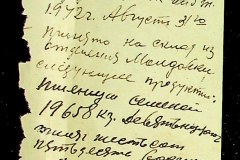 1942г. Август 31го
Принято на склад из
отделения Молдовки
следующие продукты:
Пшеница семенной
19658 кг. Девятнадцать
тысяч шестьсот
пятьдесят